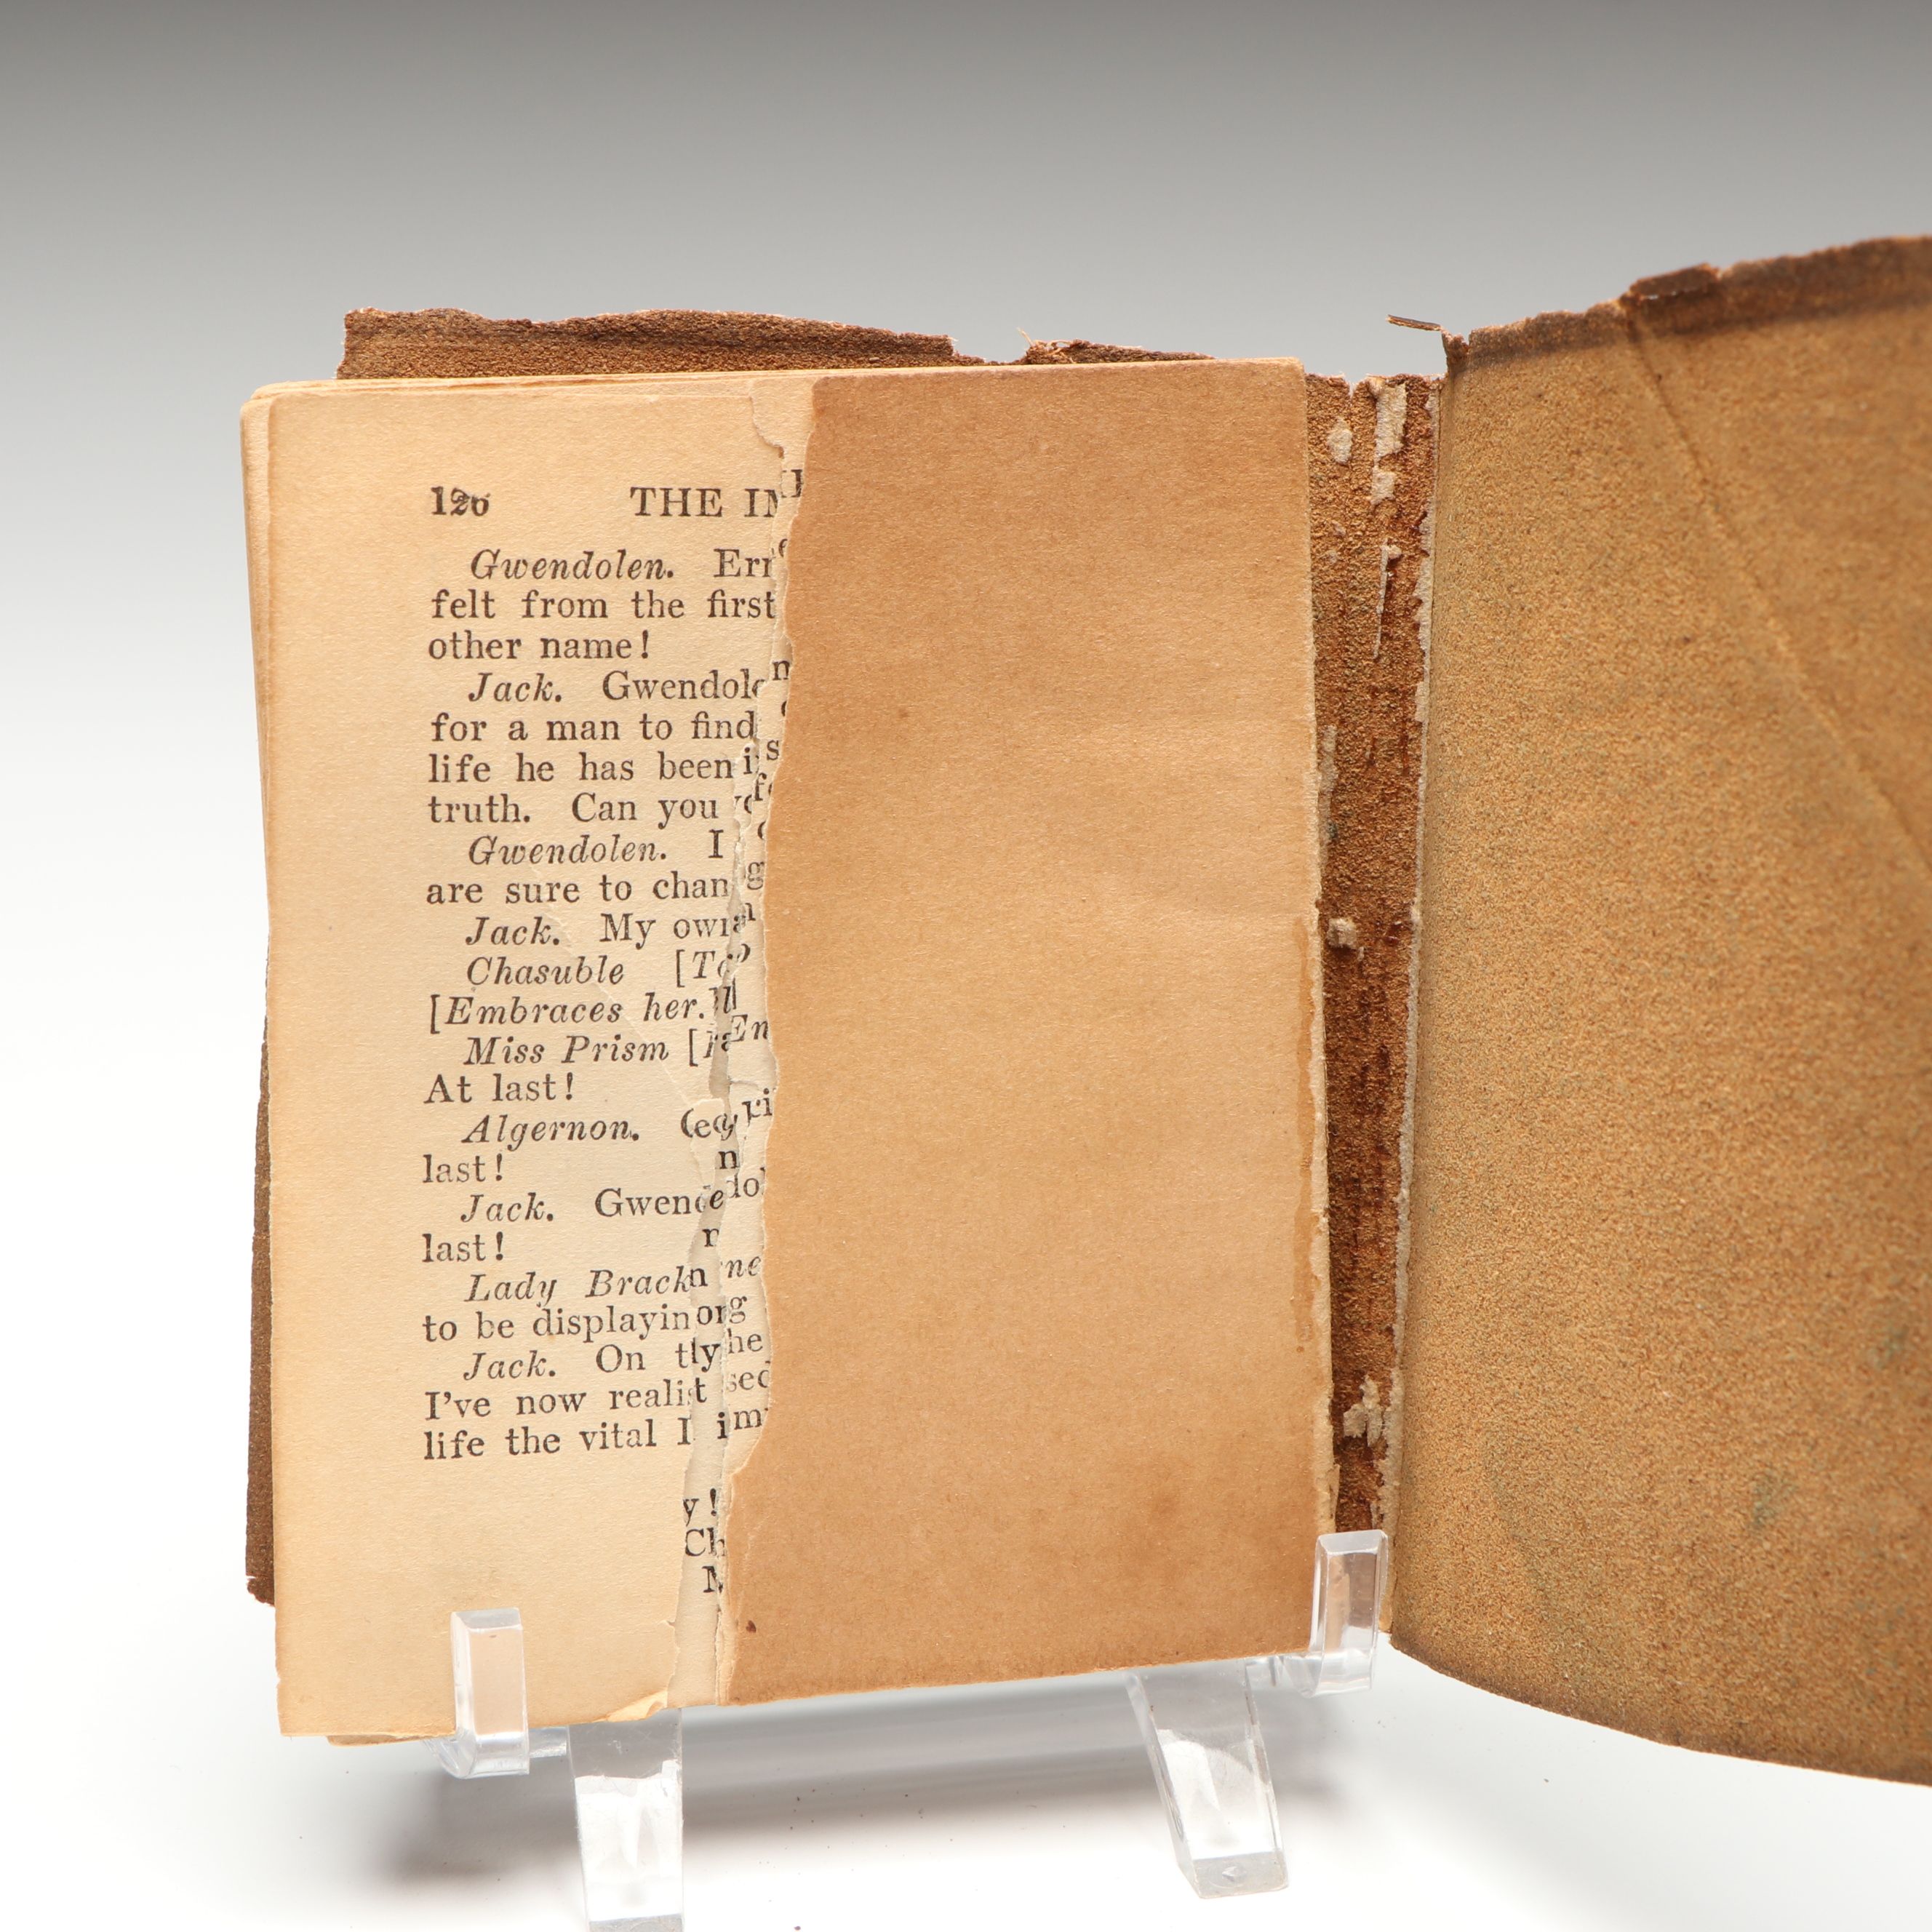 126 THE IM
Gwendolen. Ern
felt from the first
other name!
Jack. Gwendole
for a man to find
life he has been
truth. Can you
Gwendolen. I
are sure to chan
Jack. My own
Chasuble [To
[Embraces her.]
Miss Prism [
At last!
Algernon.
last!
Jack. Gwendol
last!
Lady Brackne
to be displaying
Jack. On the
I've now realised
life the vital Im